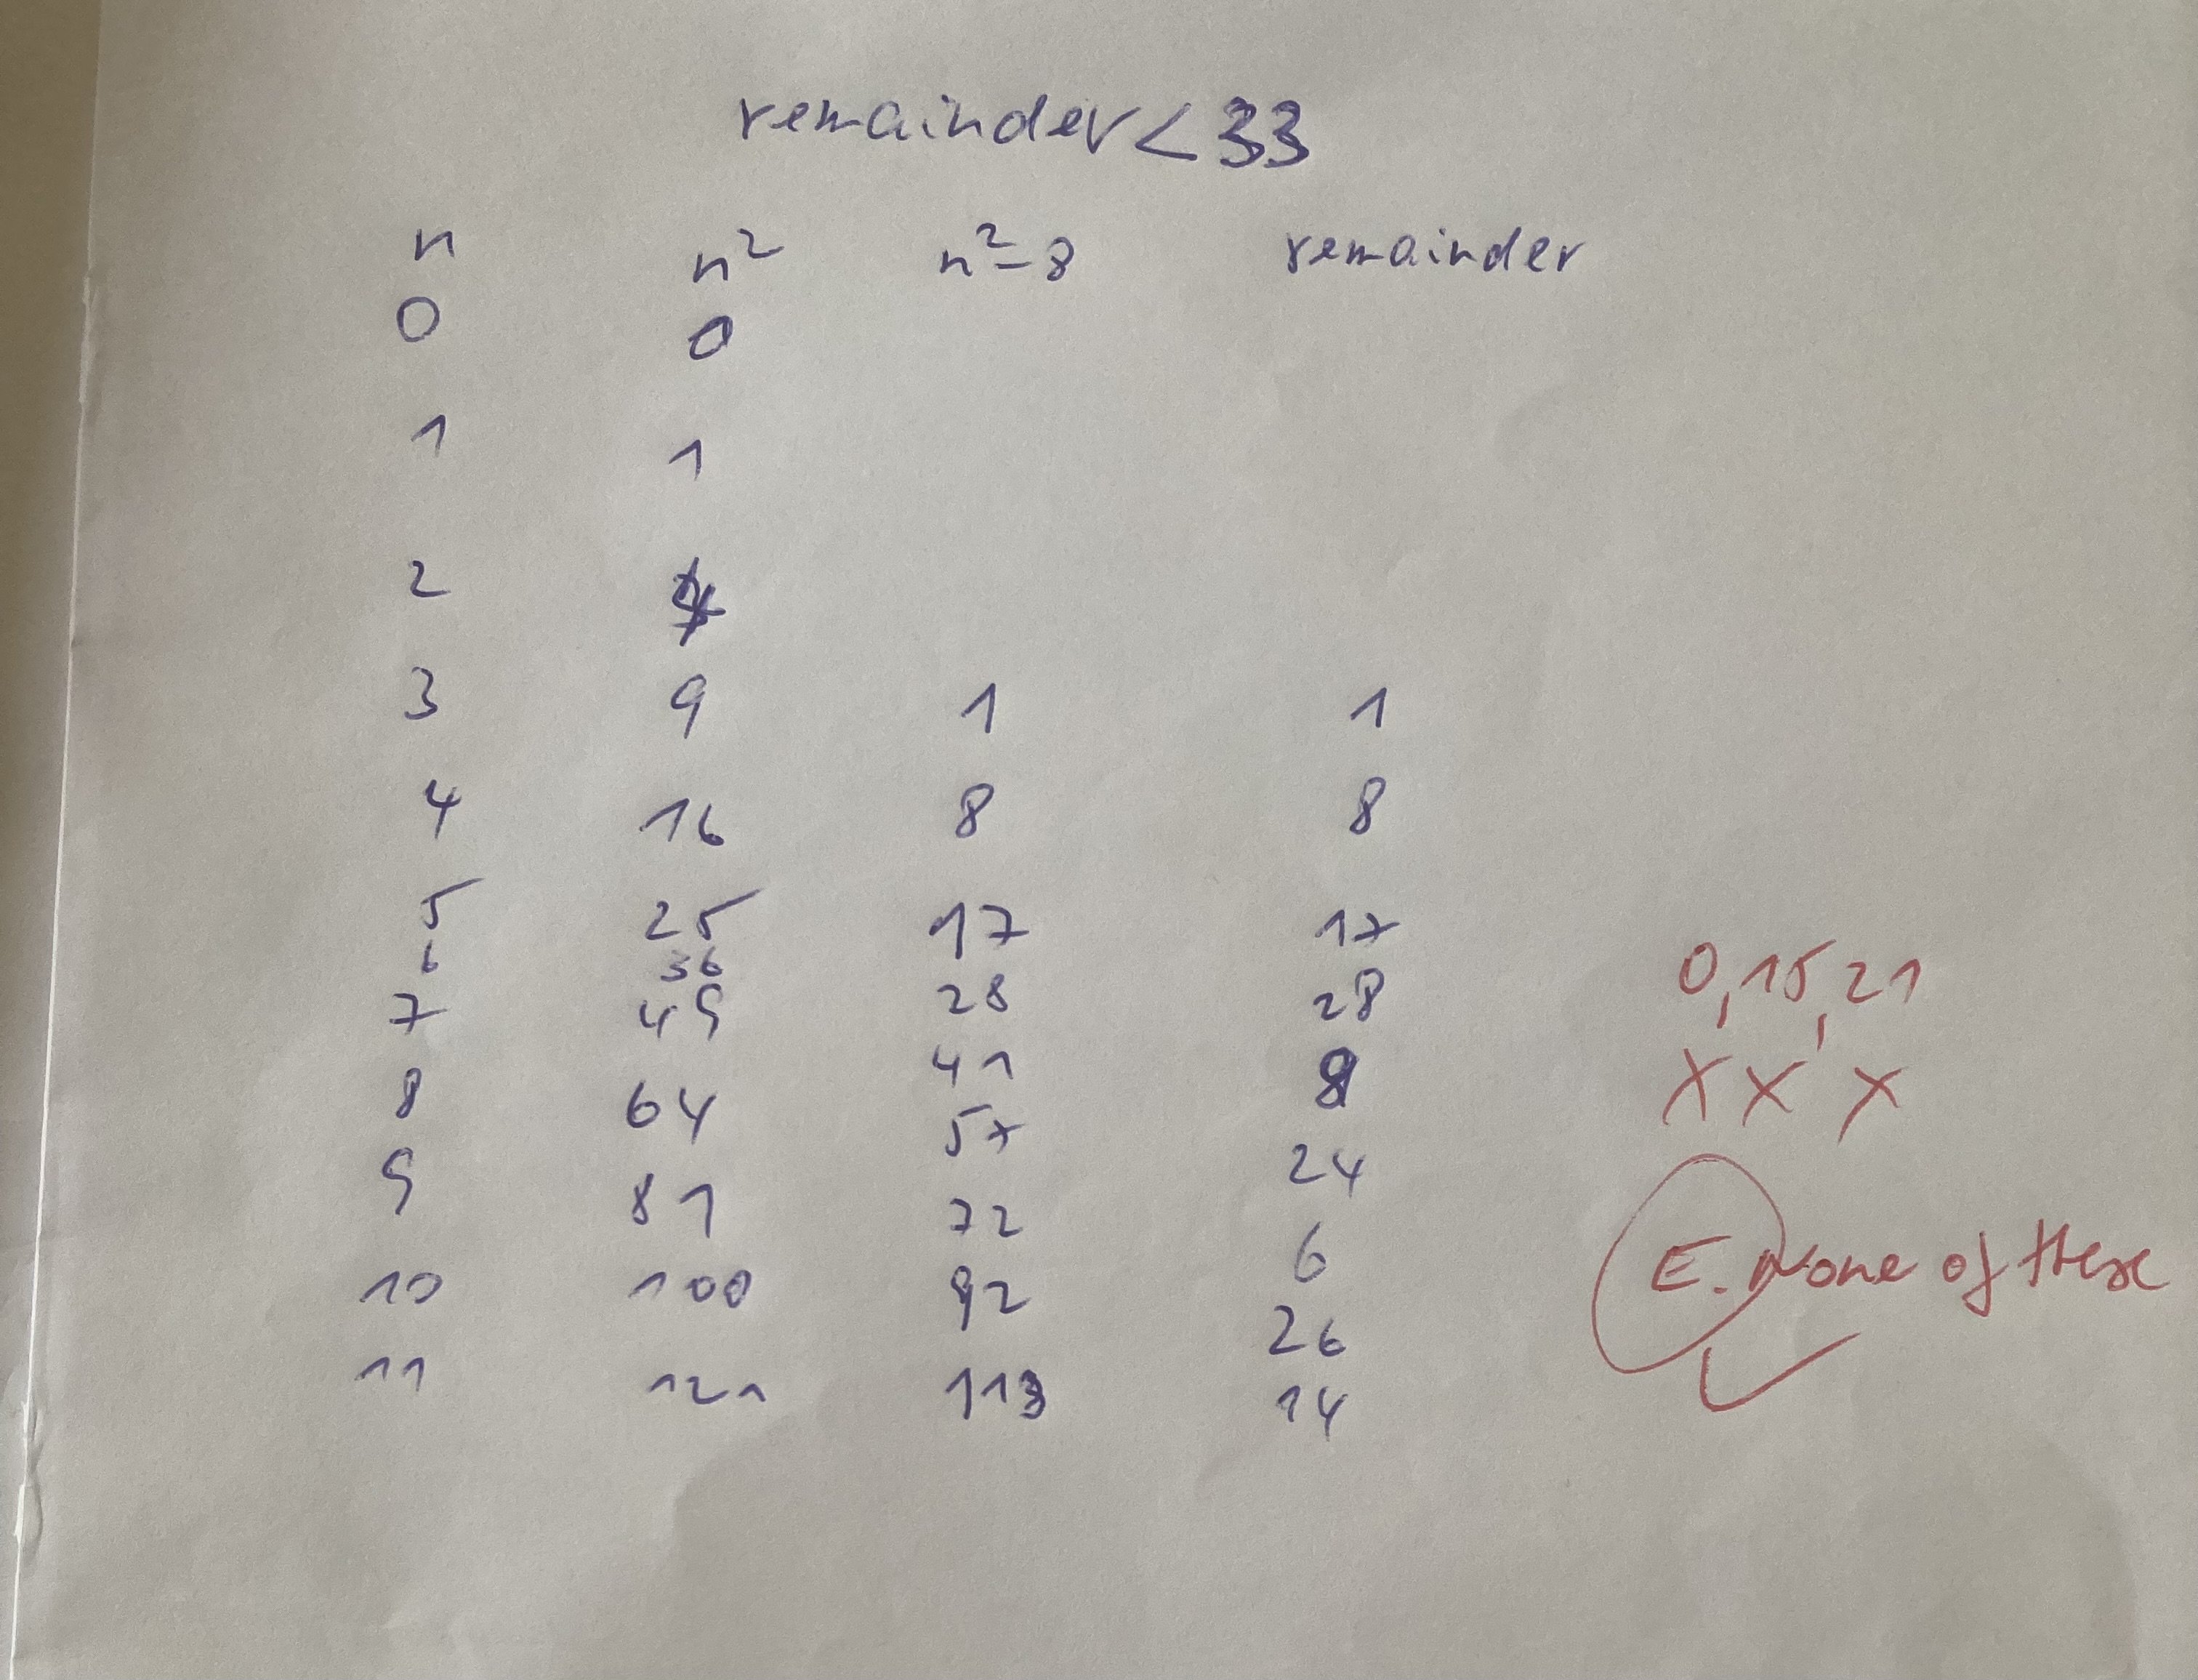 remainder < 33
n n² n²-8 remainder
0 0
1 1
2 4
3 9 1 1
4 16 8 8
5 25 17 17
6 36 28 28
7 49 41 8
8 64 57 24
9 81 72 6
10 100 92 26
11 121 113 14
0, 15, 21
X X X
E. None of these